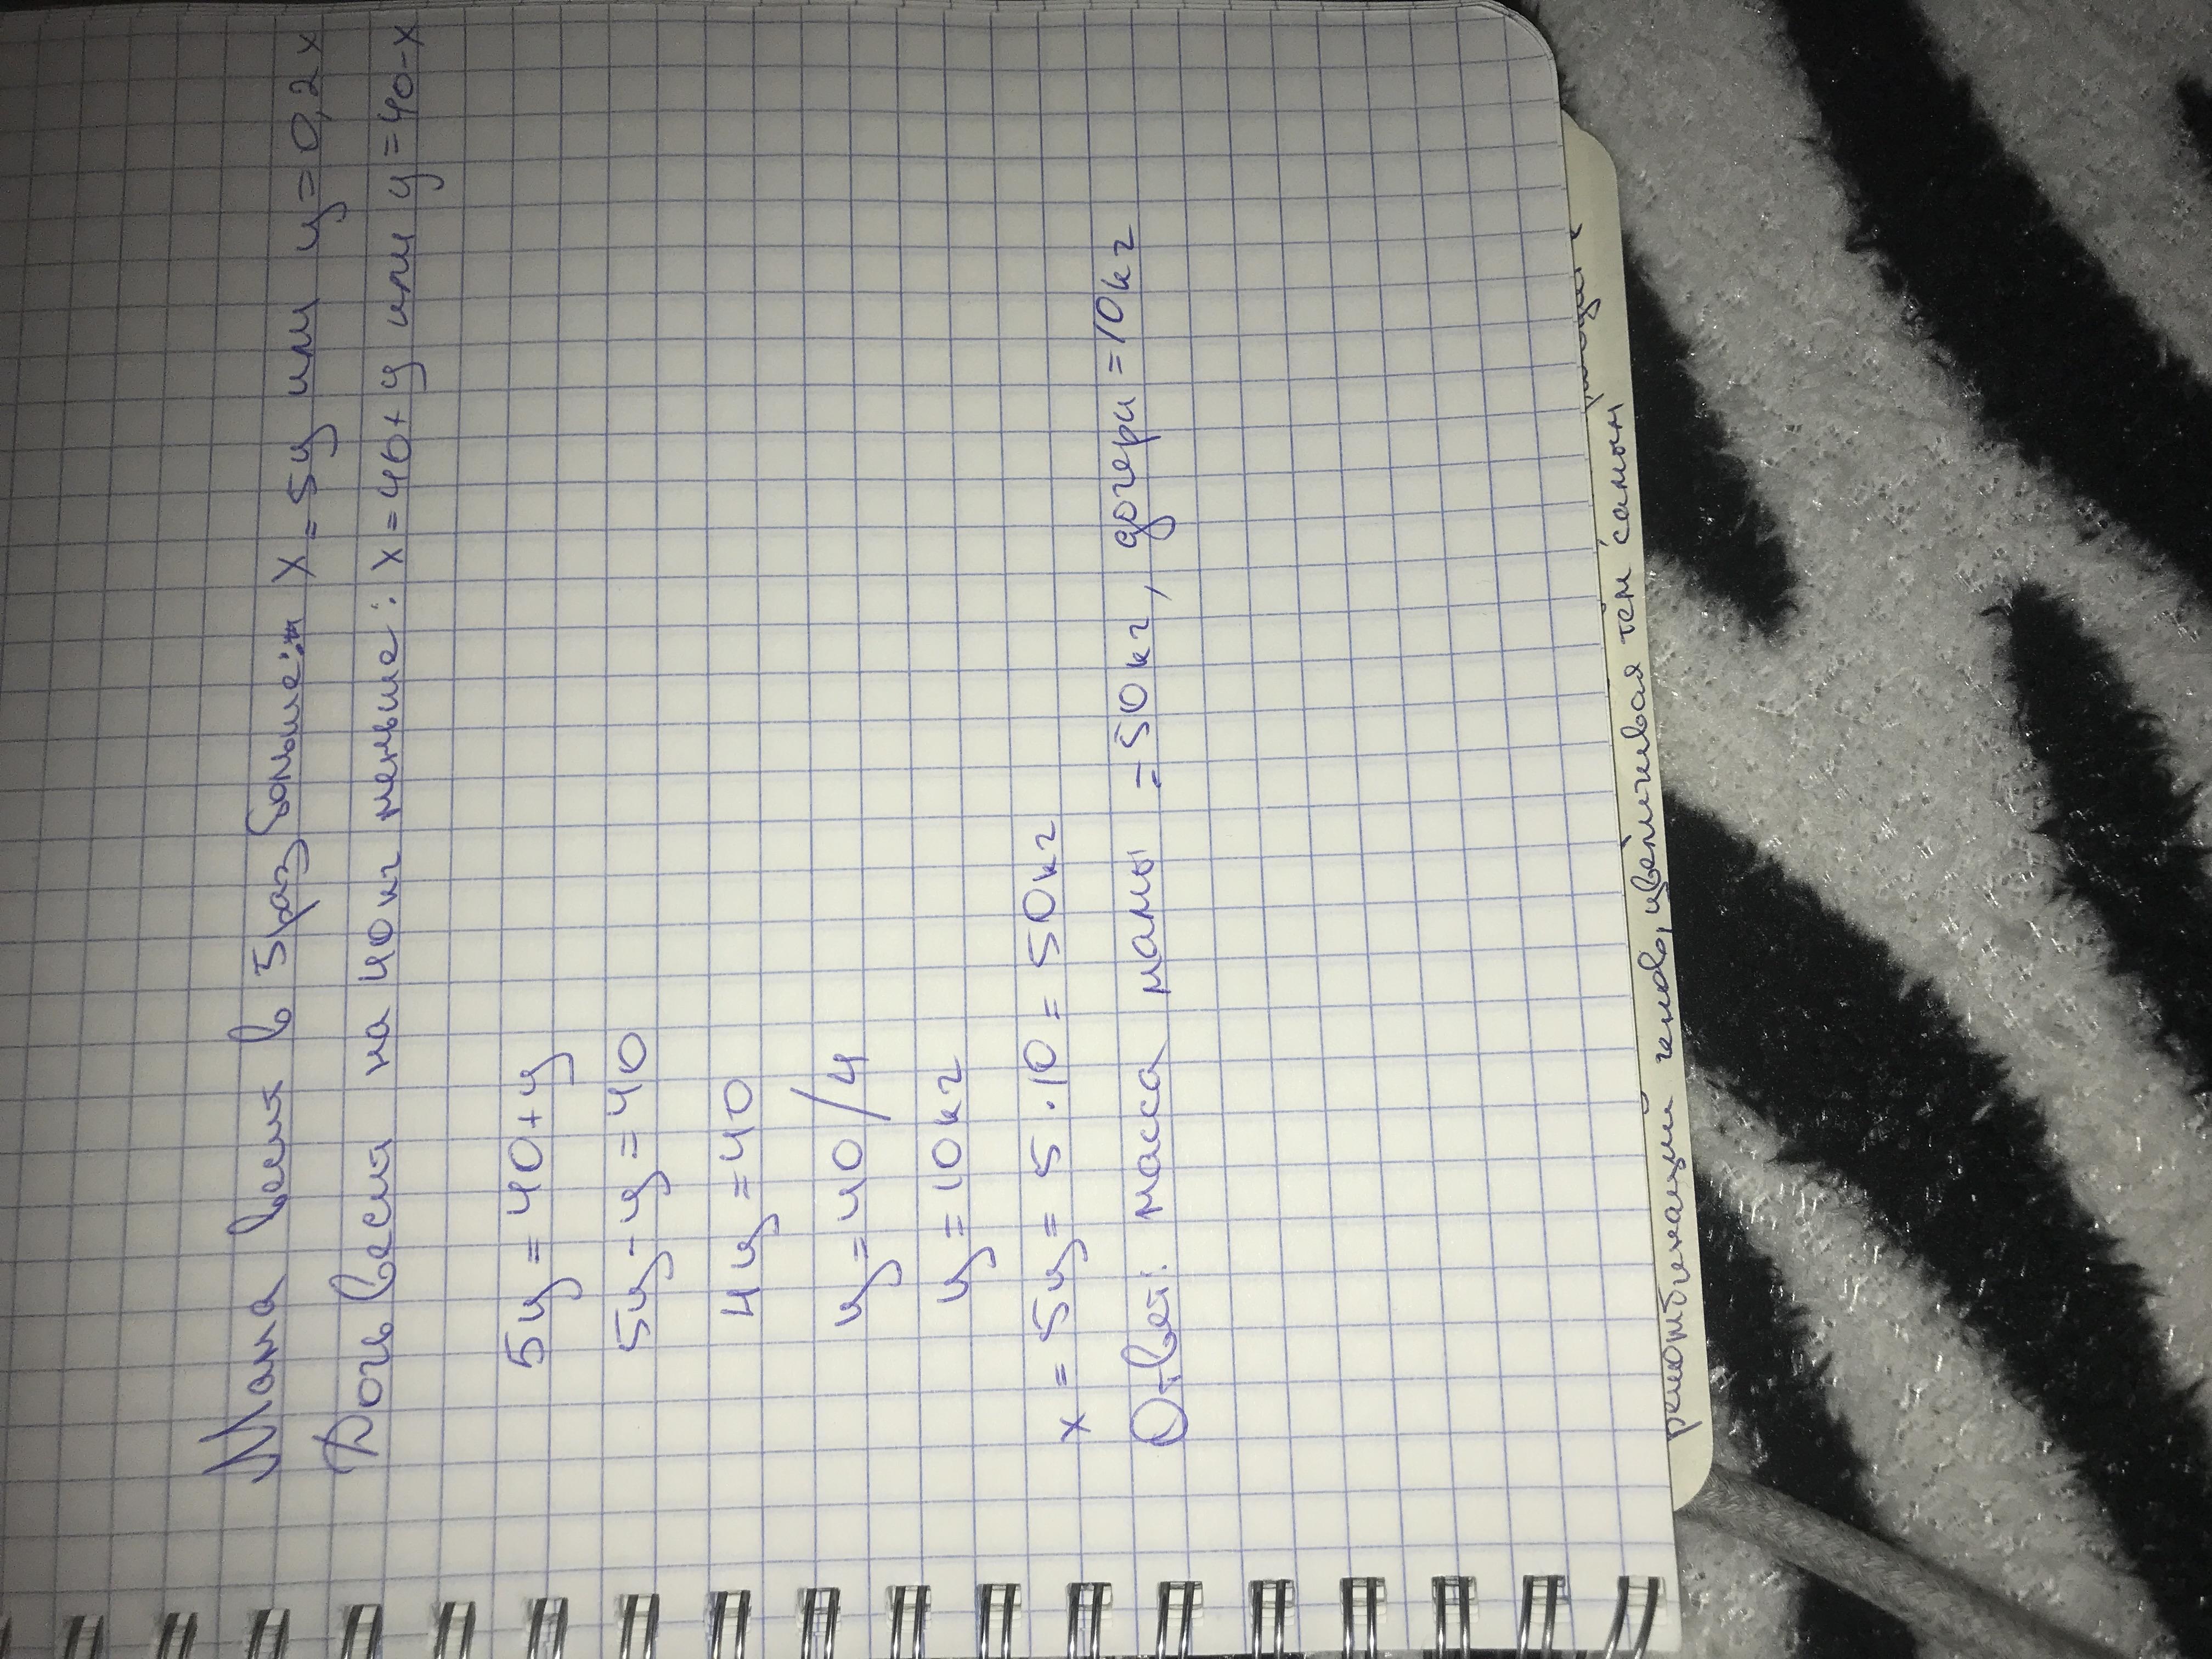 Мама весит в 5 раз больше: x = 5y или y = 0,2x
Дочь весит на 40 кг меньше: x = 40 + y или y = 40 - x
5y = 40 + y
5y - y = 40
4y = 40
y = 40 / 4
y = 10 кг
x = 5y = 5 · 10 = 50 кг
Ответ: масса мамы = 50 кг, дочери = 10 кг
рекомбинации генов, увеличивая тем самым